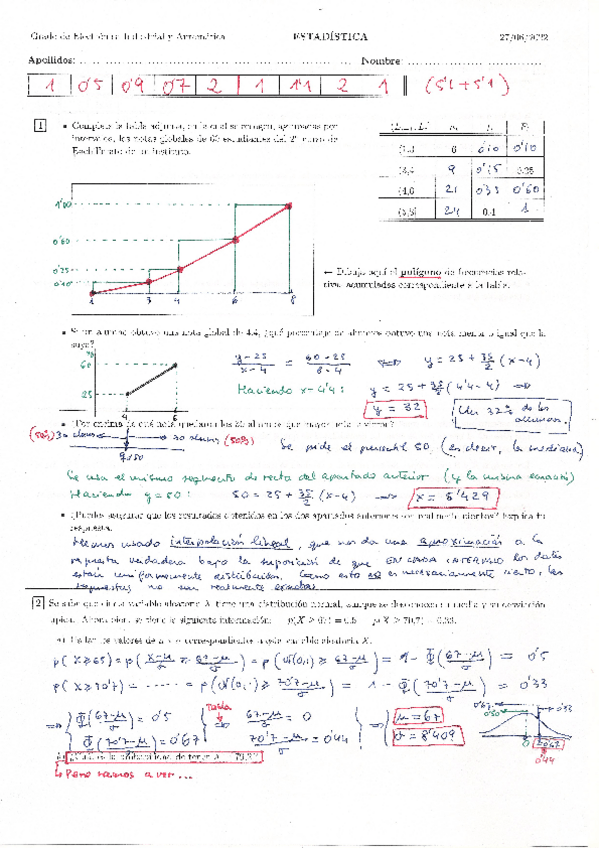 Grado de Electrónica Industrial y Automática ESTADÍSTICA 27/06/2022
Apellidos: Nombre:
1 0'5 0'9 0'7 2 1 1'1 2 1 (5'1+5'1)
1 • Completa la tabla adjunta, en la cual se recogen, agrupadas por
intervalos, las notas globales de 60 estudiantes del 2º curso de
Bachillerato de un instituto.
6 0'10 0'10
9 0'15 0.25
21 0'35 0'60
24 0.4 1
1'00
0'60
0'25
0'10
1 3 4 6 8
← Dibuja aquí el polígono de frecuencias rela-
tivas acumuladas correspondiente a la tabla.
• Si un alumno obtuvo una nota global de 4.4, ¿qué porcentaje de alumnos obtuvo una nota menor o igual que la
suya?
%
60
25
4 6
y-25 / x-4 = 60-25 / 6-4 ⟺ y = 25 + 35/2 (x-4)
Haciendo x=4'4: y = 25 + 35/2 (4'4-4) ⟹
y = 32 Un 32% de los alumnos.
• ¿Por encima de qué nota quedaron los 30 alumnos que
(50%) 30 alumnos 30 alumnos (50%)
Se pide el percentil 50 (es decir, la mediana)
Se usa el mismo segmento de recta del apartado anterior (y la misma ecuación)
Haciendo y=50: 50 = 25 + 35/2 (x-4) ⟹ x = 5'429
• ¿Puedes asegurar que los resultados obtenidos en los dos apartados anteriores son realmente ciertos? Explica tu
respuesta.
Hemos usado interpolación lineal, que nos da una aproximación a la
respuesta verdadera bajo la suposición de que EN CADA INTERVALO los datos
están uniformemente distribuidos. Como esto no es necesariamente cierto, las
respuestas no son realmente exactas.
2 Se sabe que cierta variable aleatoria X tiene una distribución normal, aunque se desconocen su media y su desviación
típica. Ahora bien, se tiene la siguiente información: p(X ≥ 67) = 0.5 p(X ≥ 70.7) = 0.33.
a) Halla los valores de μ y σ correspondientes a esta variable aleatoria X.
p(X≥65) = p(X-μ/σ ≥ 67-μ/σ) = p(N(0,1) ≥ 67-μ/σ) = 1 - Φ(67-μ/σ) = 0'5
p(X≥70'7) = ...... = p(N(0,1) ≥ 70'7-μ/σ) = 1 - Φ(70'7-μ/σ) = 0'33
⟹ Φ(67-μ/σ) = 0'5 Tabla 67-μ/σ = 0 ⟹ μ = 67
Φ(70'7-μ/σ) = 0'67 70'7-μ/σ = 0'44 σ = 8'409
0'67 0'33
0'50
0 0'44
↳ Pero vamos a ver...